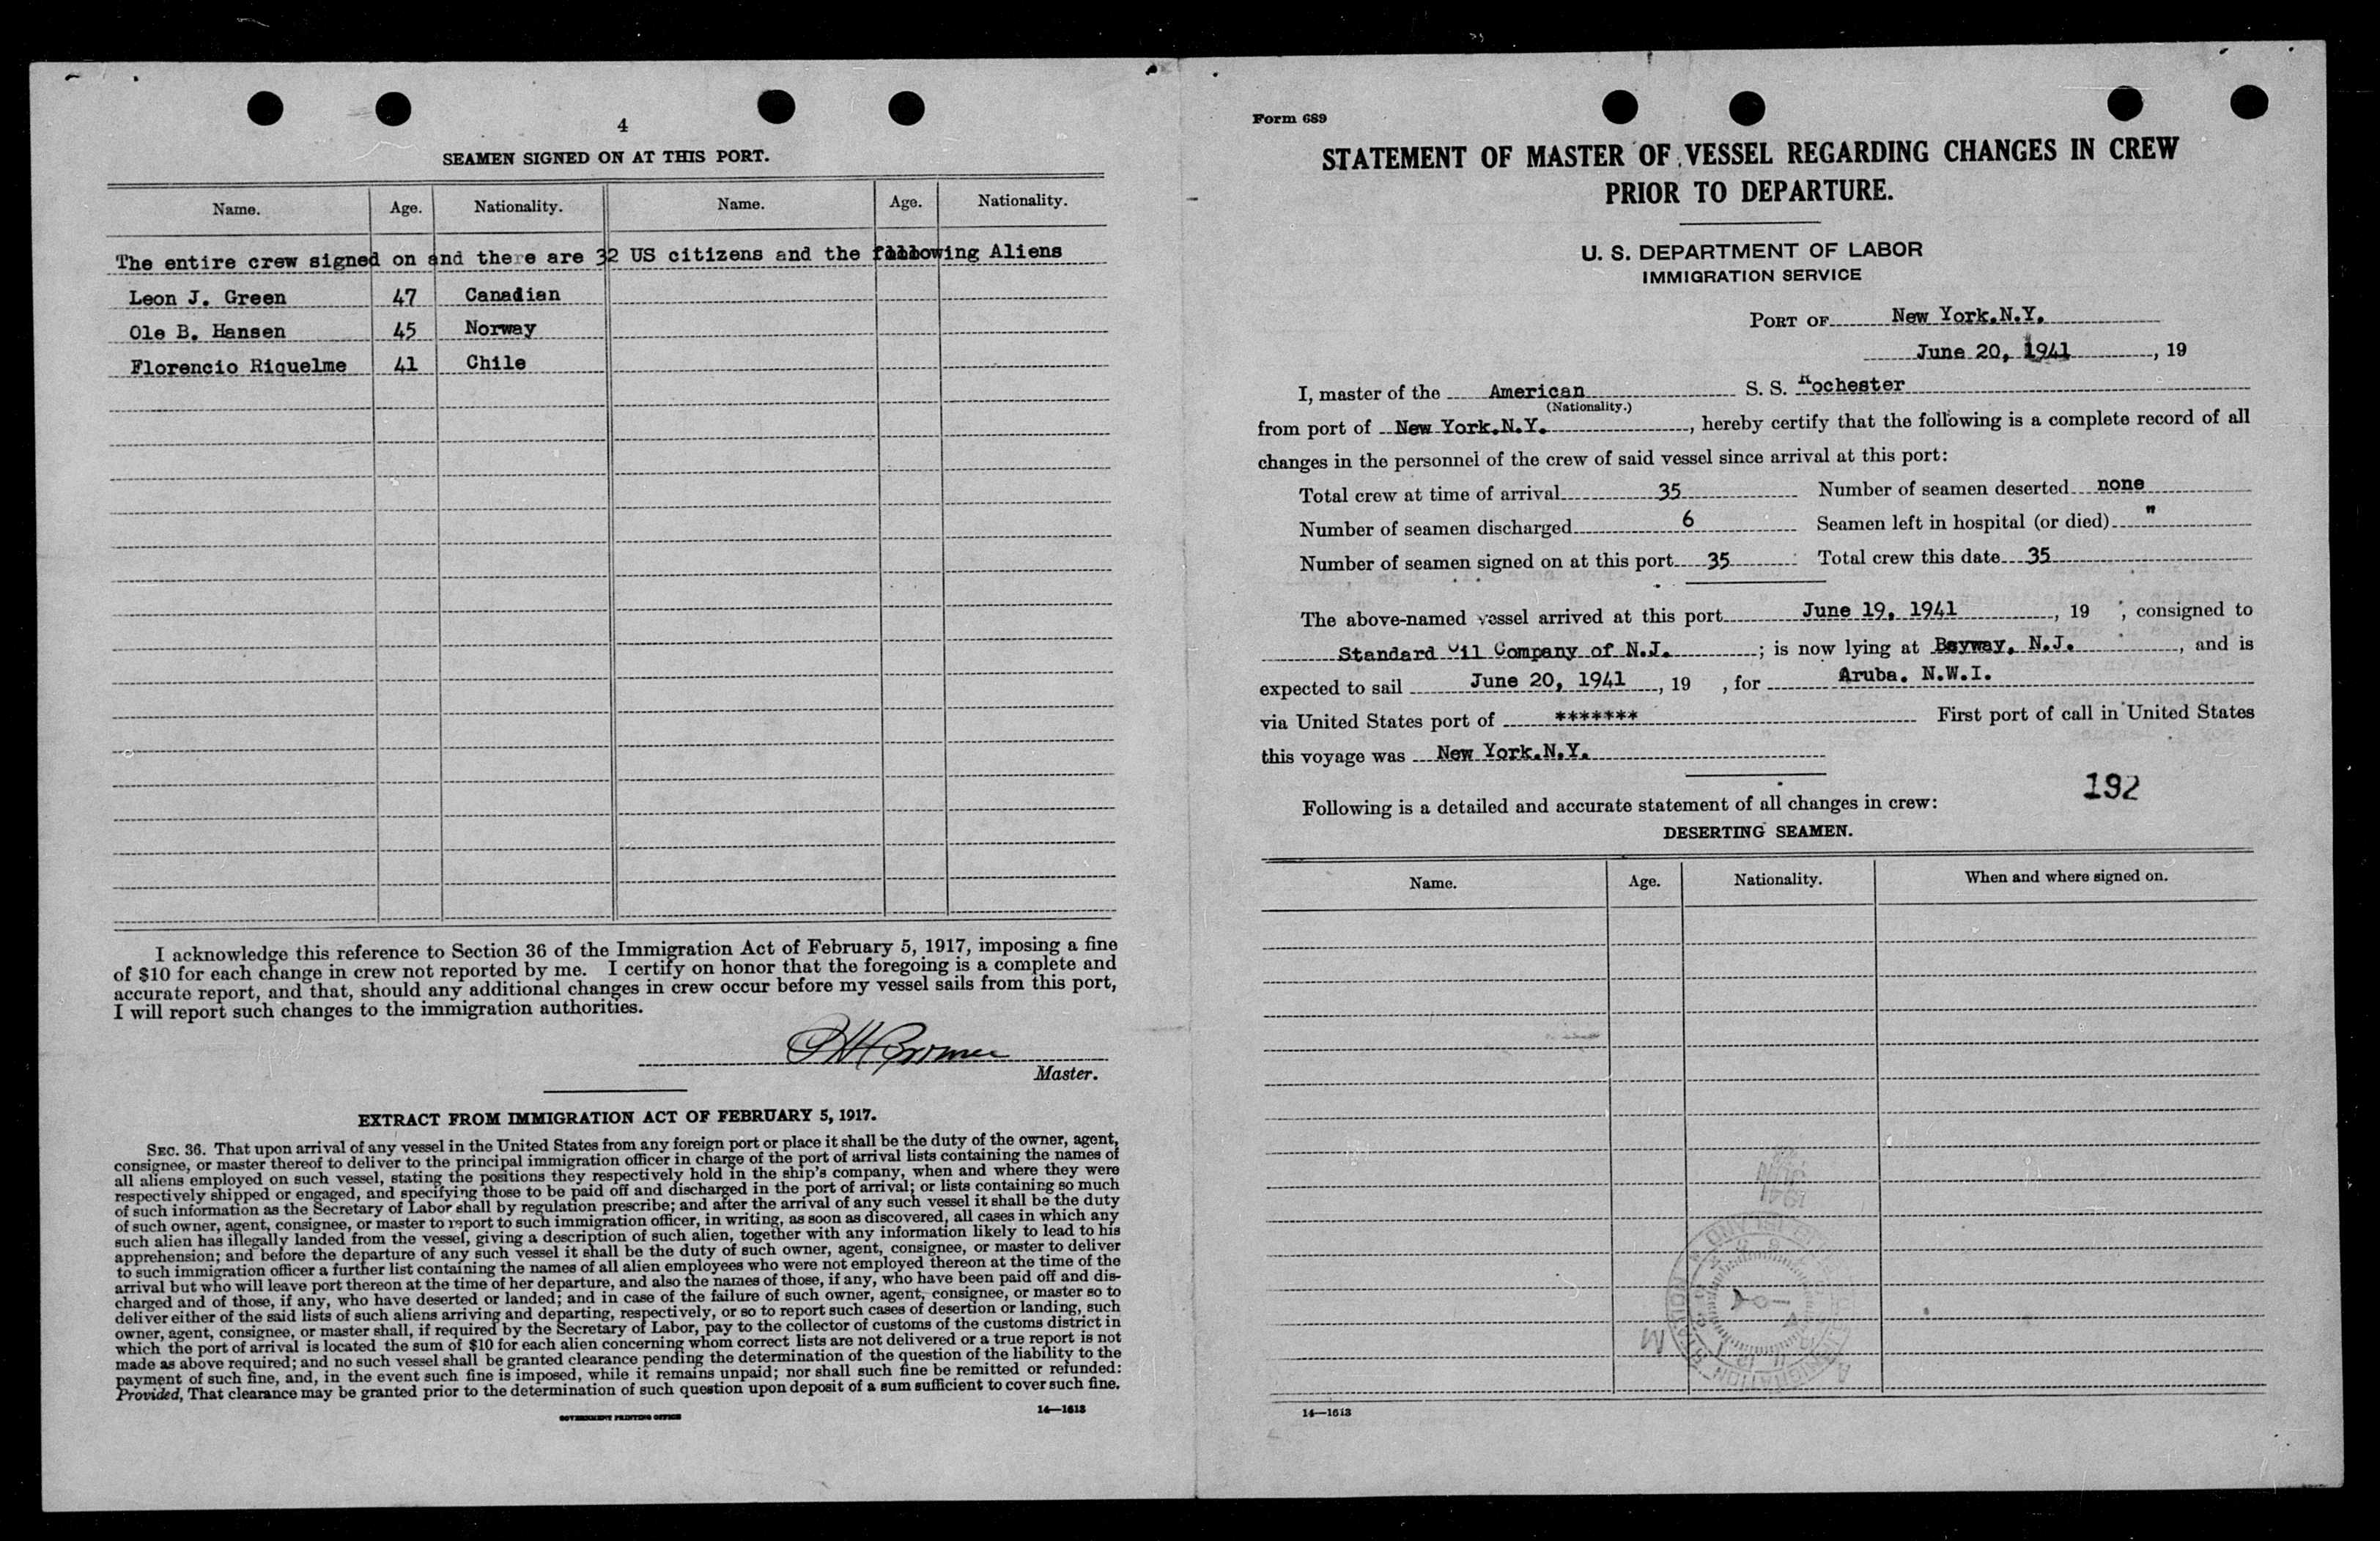 4
SEAMEN SIGNED ON AT THIS PORT.
Name. Age. Nationality. Name. Age. Nationality.
The entire crew signed on and there are 32 US citizens and the following Aliens
Leon J. Green 47 Canadian
Ole B. Hansen 45 Norway
Florencio Riquelme 41 Chile
I acknowledge this reference to Section 36 of the Immigration Act of February 5, 1917, imposing a fine
of $10 for each change in crew not reported by me. I certify on honor that the foregoing is a complete and
accurate report, and that, should any additional changes in crew occur before my vessel sails from this port,
I will report such changes to the immigration authorities.
Master.
EXTRACT FROM IMMIGRATION ACT OF FEBRUARY 5, 1917.
SEC. 36. That upon arrival of any vessel in the United States from any foreign port or place it shall be the duty of the owner, agent,
consignee, or master thereof to deliver to the principal immigration officer in charge of the port of arrival lists containing the names of
all aliens employed on such vessel, stating the positions they respectively hold in the ship's company, when and where they were
respectively shipped or engaged, and specifying those to be paid off and discharged in the port of arrival; or lists containing so much
of such information as the Secretary of Labor shall by regulation prescribe; and after the arrival of any such vessel it shall be the duty
of such owner, agent, consignee, or master to report to such immigration officer, in writing, as soon as discovered, all cases in which any
such alien has illegally landed from the vessel, giving a description of such alien, together with any information likely to lead to his
apprehension; and before the departure of any such vessel it shall be the duty of such owner, agent, consignee, or master to deliver
to such immigration officer a further list containing the names of all alien employees who were not employed thereon at the time of the
arrival but who will leave port thereon at the time of her departure, and also the names of those, if any, who have been paid off and dis-
charged and of those, if any, who have deserted or landed; and in case of the failure of such owner, agent, consignee, or master so to
deliver either of the said lists of such aliens arriving and departing, respectively, or so to report such cases of desertion or landing, such
owner, agent, consignee, or master shall, if required by the Secretary of Labor, pay to the collector of customs of the customs district in
which the port of arrival is located the sum of $10 for each alien concerning whom correct lists are not delivered or a true report is not
made as above required; and no such vessel shall be granted clearance pending the determination of the question of the liability to the
payment of such fine, and, in the event such fine is imposed, while it remains unpaid; nor shall such fine be remitted or refunded:
Provided, That clearance may be granted prior to the determination of such question upon deposit of a sum sufficient to cover such fine.
GOVERNMENT PRINTING OFFICE 14—1613
Form 689
STATEMENT OF MASTER OF VESSEL REGARDING CHANGES IN CREW
PRIOR TO DEPARTURE.
U. S. DEPARTMENT OF LABOR
IMMIGRATION SERVICE
PORT OF New York.N.Y.
June 20, 1941, 19
I, master of the American S. S. Rochester
(Nationality.)
from port of New York.N.Y., hereby certify that the following is a complete record of all
changes in the personnel of the crew of said vessel since arrival at this port:
Total crew at time of arrival 35 Number of seamen deserted none
Number of seamen discharged 6 Seamen left in hospital (or died) "
Number of seamen signed on at this port 35 Total crew this date 35
The above-named vessel arrived at this port June 19, 1941, 19 , consigned to
Standard Oil Company of N.J.; is now lying at Bayway, N.J., and is
expected to sail June 20, 1941, 19 , for Aruba. N.W.I.
via United States port of ******* First port of call in United States
this voyage was New York.N.Y.
192
Following is a detailed and accurate statement of all changes in crew:
DESERTING SEAMEN.
Name. Age. Nationality. When and where signed on.
14—1613